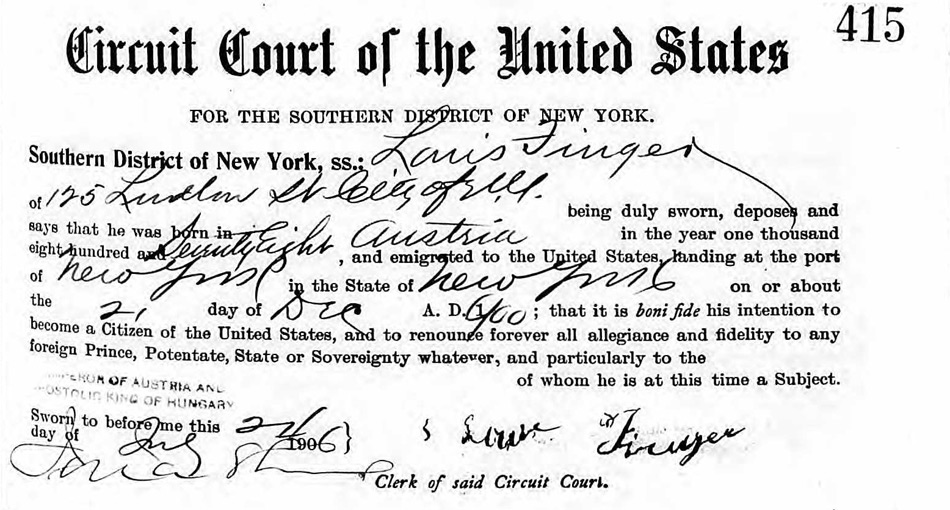 415
Circuit Court of the United States
FOR THE SOUTHERN DISTRICT OF NEW YORK.
Southern District of New York, ss.: Louis Finger
of 125 Ludlow St City of N.Y.
being duly sworn, deposes and
says that he was born in Austria in the year one thousand
eight hundred and Seventy Eight, and emigrated to the United States, landing at the port
of New York in the State of New York on or about
the 21 day of Dec A. D. 1900; that it is boni fide his intention to
become a Citizen of the United States, and to renounce forever all allegiance and fidelity to any
foreign Prince, Potentate, State or Sovereignty whatever, and particularly to the
EMPEROR OF AUSTRIA AND
APOSTOLIC KING OF HUNGARY
of whom he is at this time a Subject.
Sworn to before me this
day of 1906} Louis Finger
Clerk of said Circuit Court.